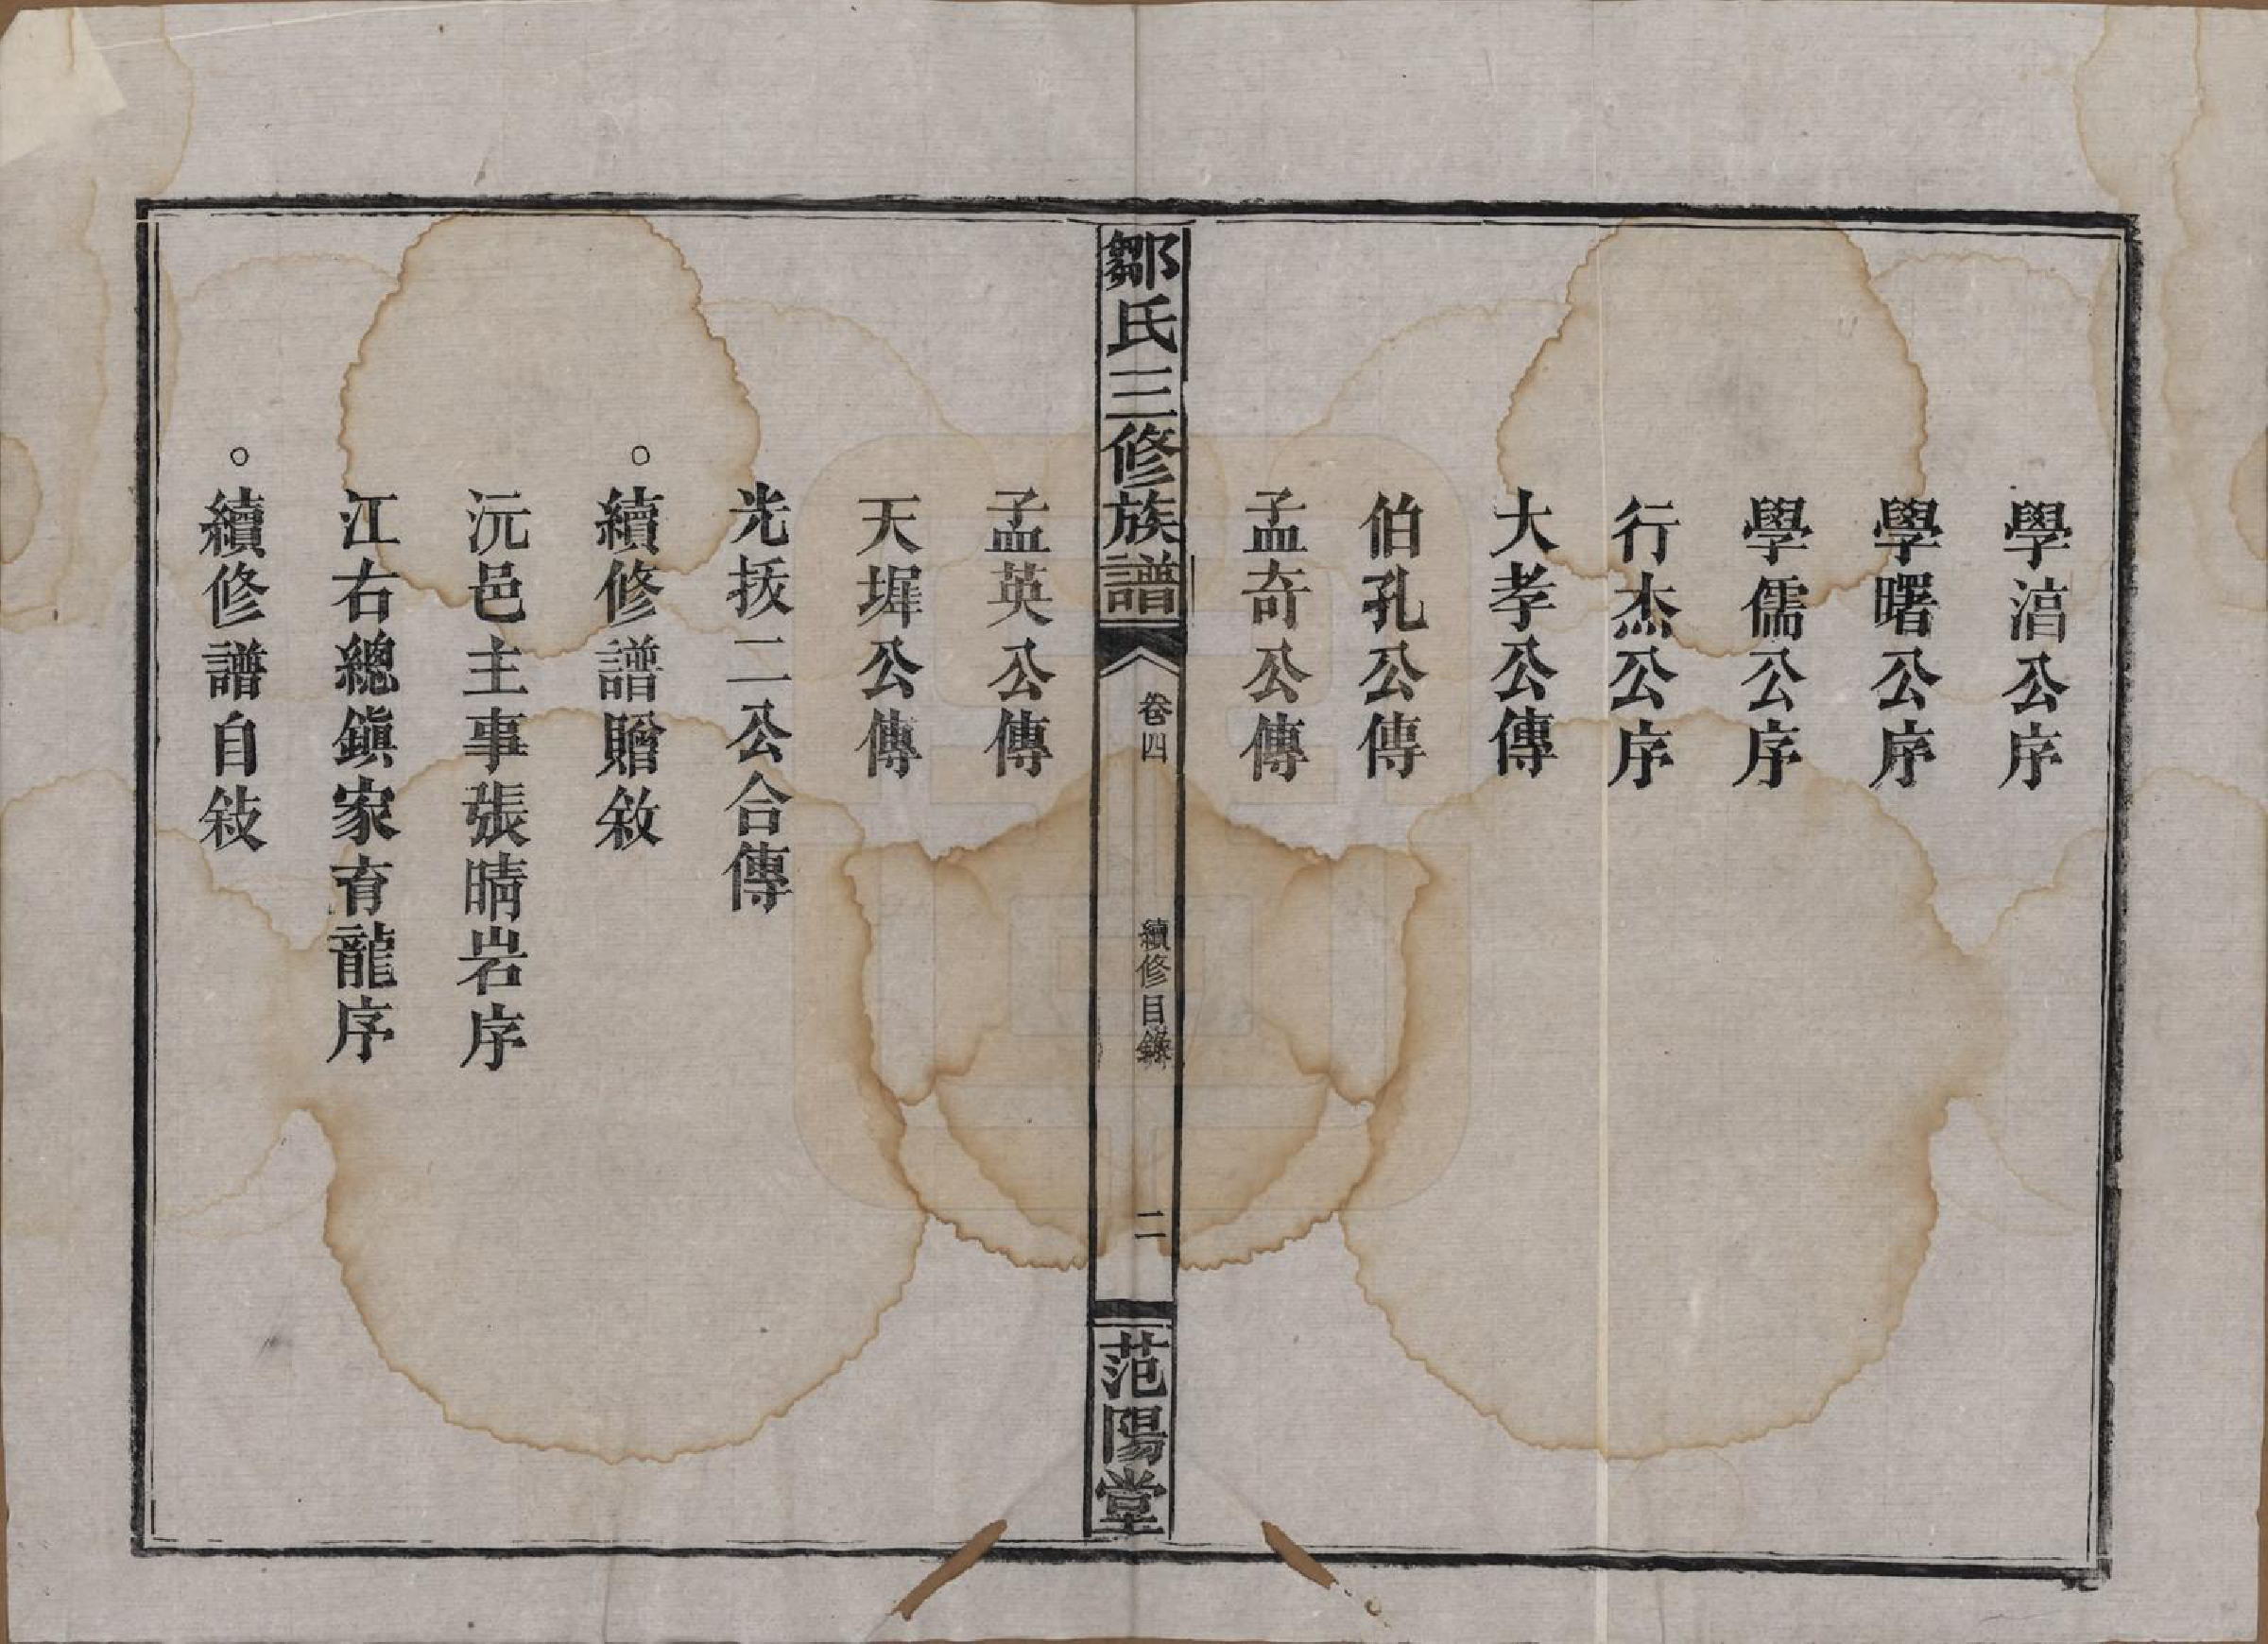 學湻公序
學曙公序
學儒公序
行杰公序
大孝公傳
伯孔公傳
孟奇公傳
鄒氏三修族譜
卷四
續修目錄
二
范陽堂
孟英公傳
天墀公傳
光拔二公合傳
。續修譜贈敘
沅邑主事張晴岩序
江右總鎭家育龍序
。續修譜自敍